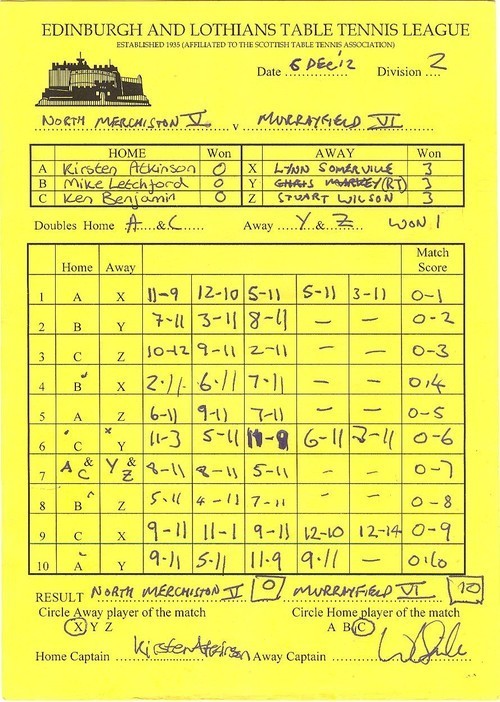 EDINBURGH AND LOTHIANS TABLE TENNIS LEAGUE
ESTABLISHED 1935 (AFFILIATED TO THE SCOTTISH TABLE TENNIS ASSOCIATION)
Date 6 DEC '12 Division 2
NORTH MERCHISTON V v MURRAYFIELD VI
HOME Won AWAY Won
A Kirsten Atkinson 0 X LYNN SOMERVILLE 3
B Mike Letchford 0 Y (RT) 3
C Ken Benjamin 0 Z STUART WILSON 3
Doubles Home A & C Away Y & Z WON 1
Home Away Match Score
1 A X 11-9 12-10 5-11 5-11 3-11 0-1
2 B Y 7-11 3-11 8-11 - - 0-2
3 C Z 10-12 9-11 2-11 - - 0-3
4 B X 2-11 6-11 7-11 - - 0-4
5 A Z 6-11 9-11 7-11 - - 0-5
6 C Y 11-3 5-11 11-9 6-11 3-11 0-6
7 A & C Y & Z 8-11 8-11 5-11 - - 0-7
8 B Z 5-11 4-11 7-11 - - 0-8
9 C X 9-11 11-1 9-11 12-10 12-14 0-9
10 A Y 9-11 5-11 11-9 9-11 - 0-10
RESULT NORTH MERCHISTON V 0 MURRAYFIELD VI 10
Circle Away player of the match Circle Home player of the match
X Y Z A B C
Home Captain Kirsten Atkinson Away Captain